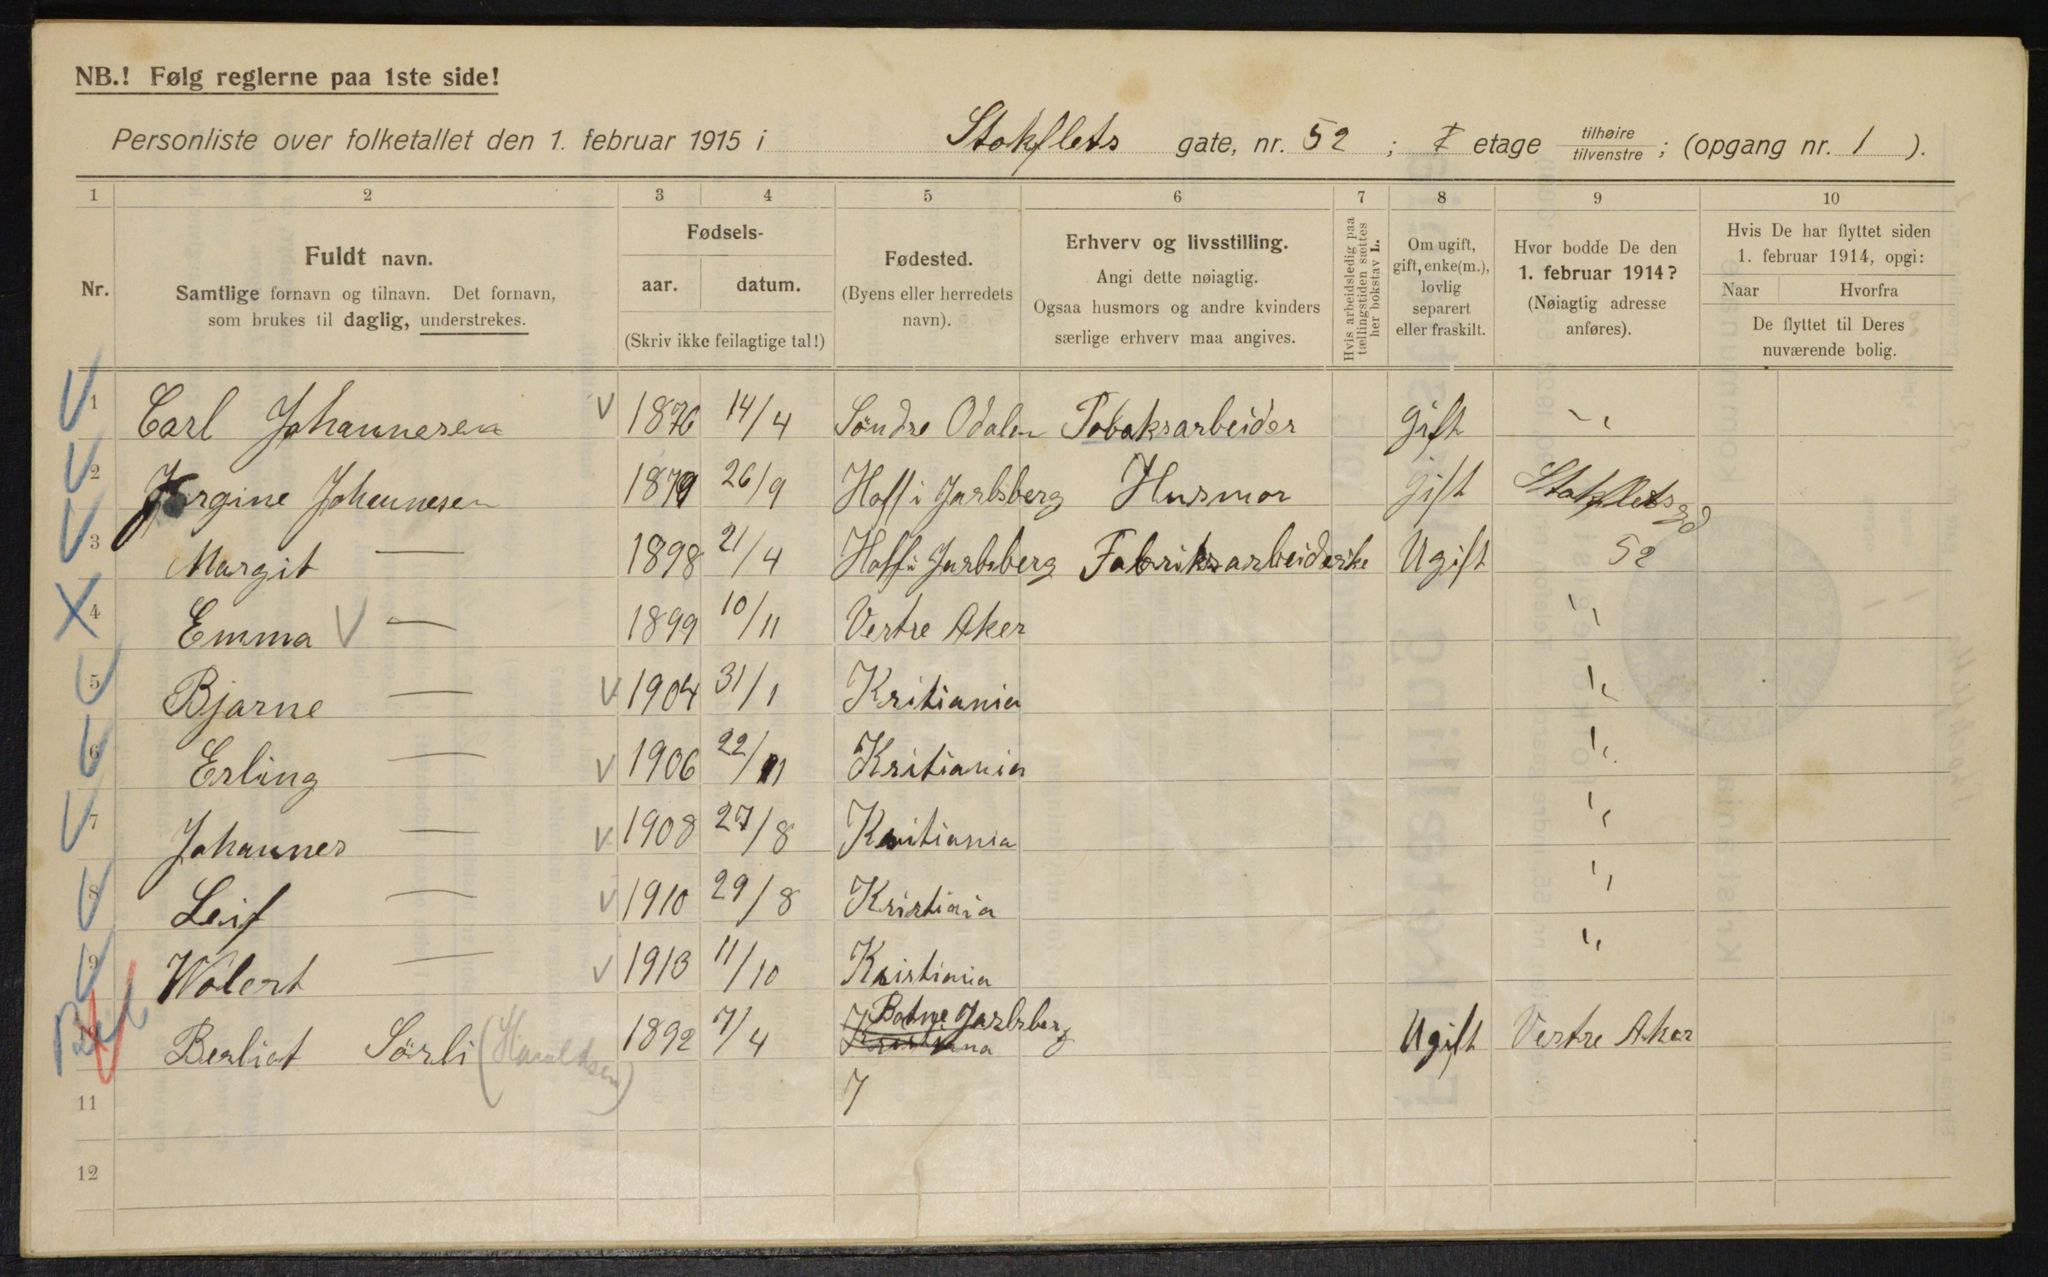 NB.! Følg reglerne paa 1ste side!
Personliste over folketallet den 1. februar 1915 i Stokflets gate, nr. 52 ; I etage tilhøire tilvenstre ; (opgang nr. 1 ).
1 2 3 4 5 6 7 8 9 10
Nr.
Fuldt navn.
Samtlige fornavn og tilnavn. Det fornavn,
som brukes til daglig, understrekes.
Fødsels-
aar. datum.
(Skriv ikke feilagtige tal!)
Fødested.
(Byens eller herredets
navn).
Erhverv og livsstilling.
Angi dette nøiagtig.
Ogsaa husmors og andre kvinders
særlige erhverv maa angives.
Hvis arbeidsledig paa
tællingstiden sættes
her bokstav L.
Om ugift,
gift, enke(m.),
lovlig
separert
eller fraskilt.
Hvor bodde De den
1. februar 1914?
(Nøiagtig adresse
anføres).
Hvis De har flyttet siden
1. februar 1914, opgi:
Naar Hvorfra
De flyttet til Deres
nuværende bolig.
1 Carl Johannesen V 1876 14/4 Søndre Odalen Tobaksarbeider gift -"-
2 Jørgine Johannesen 1879 26/9 Hoff i Jarlsberg Husmor gift Stokfletsgd
3 Margit — 1898 21/4 Hoff i Jarlsberg Fabriksarbeiderske Ugift 52
4 Emma V — 1899 10/11 Vertre Aker "
5 Bjarne — V 1904 31/1 Kritiania "
6 Erling — V 1906 22/11 Kritiania "
7 Johannes — V 1908 27/8 Kritiania "
8 Leif — V 1910 29/8 Kristiania "
9 Wolert — V 1913 11/10 Kristiania "
10 Berliot Sörli (Haraldsen) 1892 7/4 Botne Jarlsberg Ugift Vertre Aker
Kristiana
11 7
12